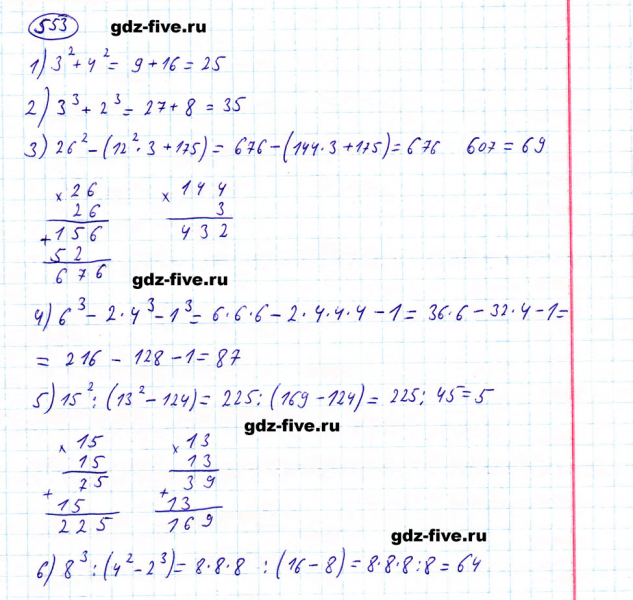 553 gdz-five.ru
1) 3² + 4² = 9 + 16 = 25
2) 3³ + 2³ = 27 + 8 = 35
3) 26² - (12² · 3 + 175) = 676 - (144 · 3 + 175) = 676 607 = 69
× 26 × 144
26 3
+ 156 432
52
676 gdz-five.ru
4) 6³ - 2 · 4³ - 1³ = 6 · 6 · 6 - 2 · 4 · 4 · 4 - 1 = 36 · 6 - 32 · 4 - 1 =
= 216 - 128 - 1 = 87
5) 15² : (13² - 124) = 225 : (169 - 124) = 225 : 45 = 5
gdz-five.ru
× 15 × 13
15 13
+ 75 + 39
15 13
225 169
gdz-five.ru
6) 8³ : (4² - 2³) = 8 · 8 · 8 : (16 - 8) = 8 · 8 · 8 : 8 = 64